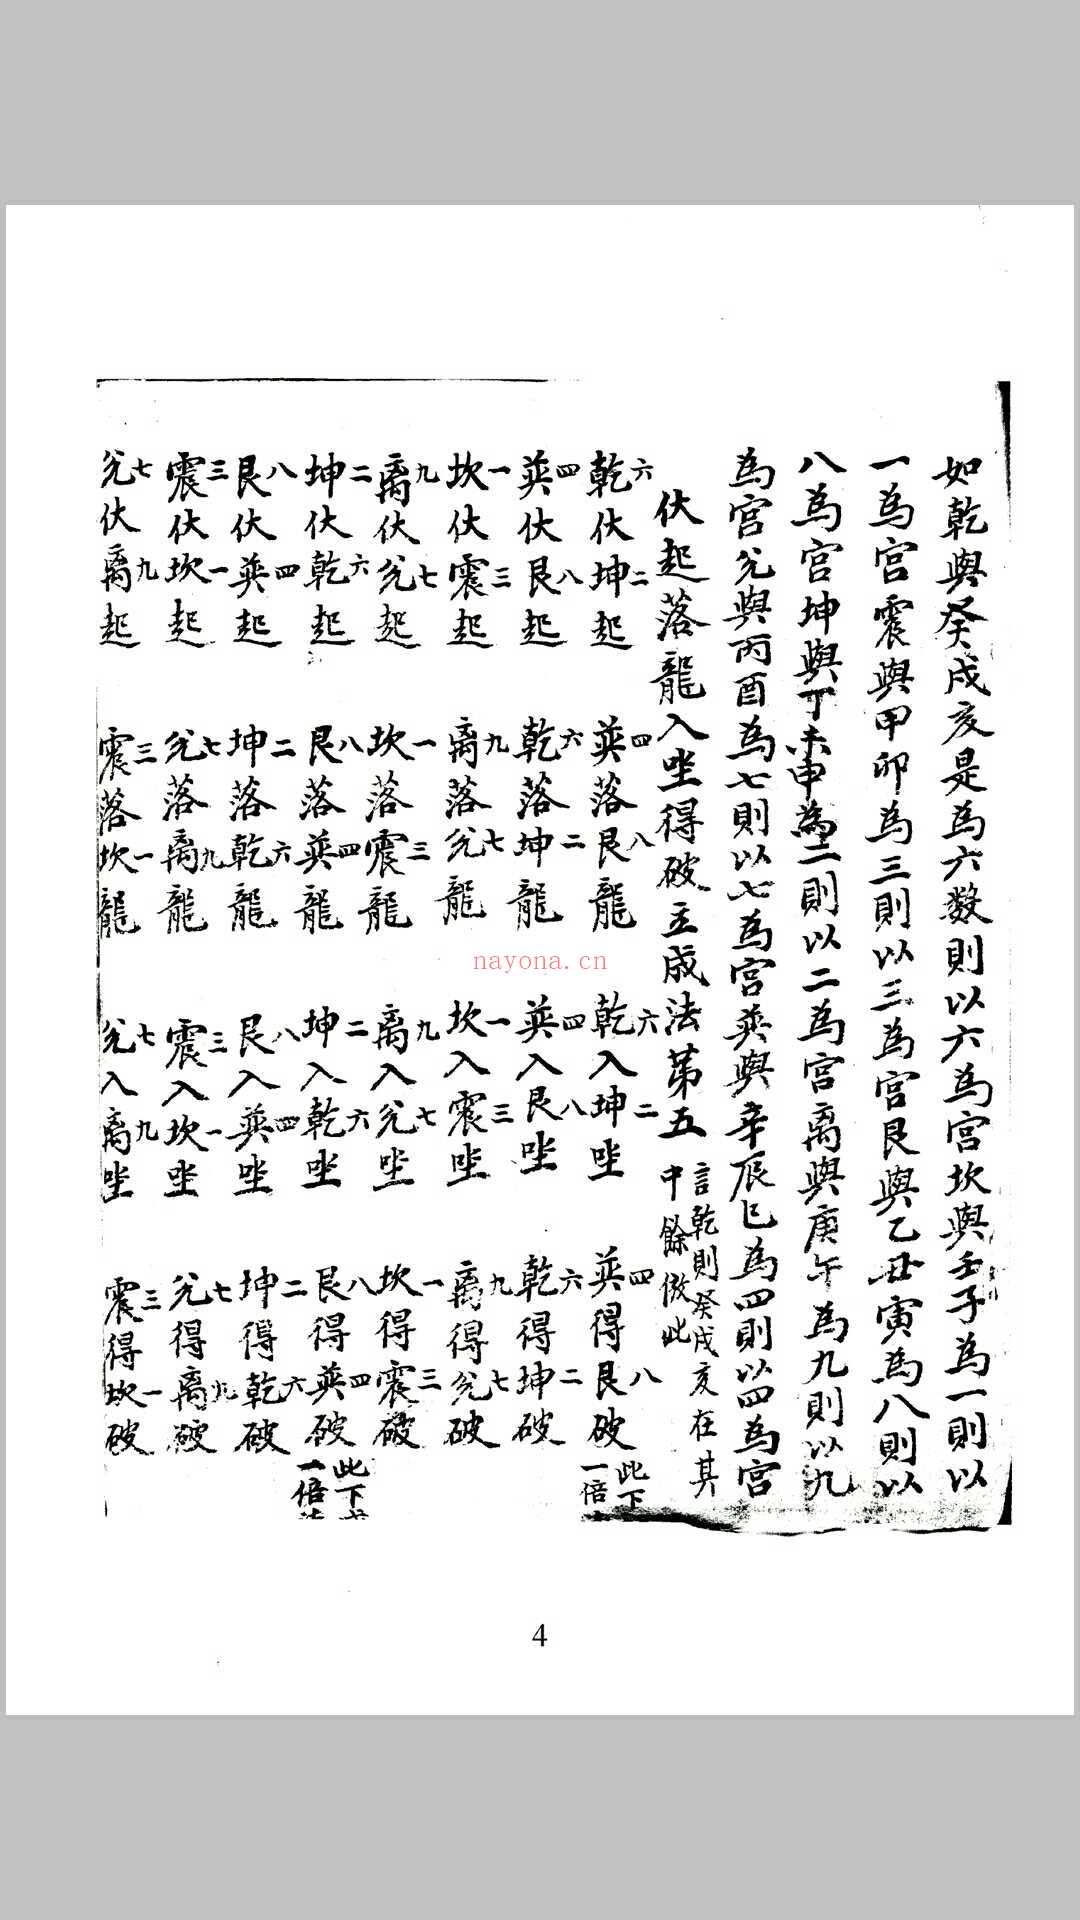 如乾與癸戍亥是為六数則以六為宮坎與壬子為一則以
一為宮震與甲卯為三則以三為宮艮與乙丑寅為八則以
八為宮坤與丁未申為二則以二為宮离與庚午為九則以九
為宮兊與丙酉為七則以七為宮巽與辛辰巳為四則以四為宮
伏起落龍入坐得破立成法第五 言乾則癸戍亥在其中餘倣此
乾六伏坤二起 巽四落艮八龍 乾六入坤二坐 巽四得艮八破 此下一倍
巽四伏艮八起 乾六落坤二龍 巽四入艮八坐 乾六得坤二破
坎一伏震三起 离九落兊七龍 坎一入震三坐 离九得兊七破
离九伏兊七起 坎一落震三龍 离九入兊七坐 坎一得震三破
坤二伏乾六起 艮八落巽四龍 坤二入乾六坐 艮八得巽四破 此下一倍
艮八伏巽四起 坤二落乾六龍 艮八入巽四坐 坤二得乾六破
震三伏坎一起 兊七落离九龍 震三入坎一坐 兊七得离九破
兊七伏离九起 震三落坎一龍 兊七入离九坐 震三得坎一破
nayona.cn
4